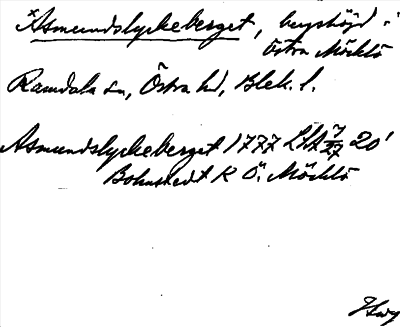 *Asmundslyckeberget, bergshöjd i
Östra Möcklö
Ramdala sn, Östra hd, Blek. l.
Asmundslyckeberget 1777 LSA 7/27 20'
Bohnstedt K Ö. Möcklö